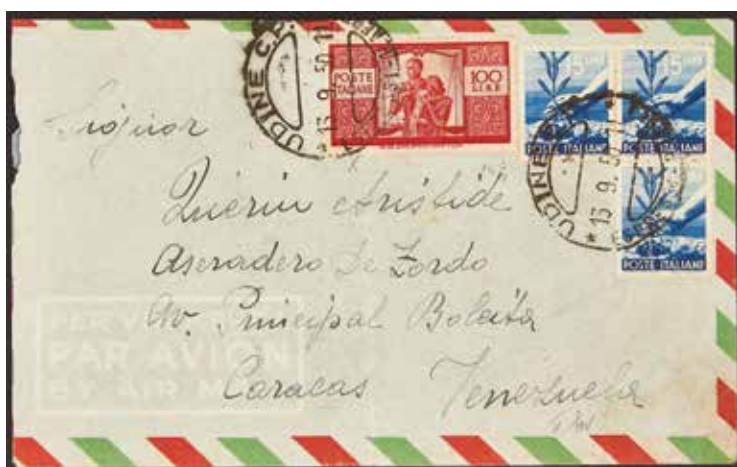 UDINE C.P.
13.9.50.11
POSTE
ITALIANE
100
LIRE
15 LIRE
15 LIRE
POSTE ITALIANE
POSTE ITALIANE
UDINE
13.9.50.11
POSTE ITALIANE
Signor
Querin Aristide
Aseradero De Zordo
Av. Principal Boleita
Caracas Venezuela
PER VIA
PAR AVION
BY AIR M